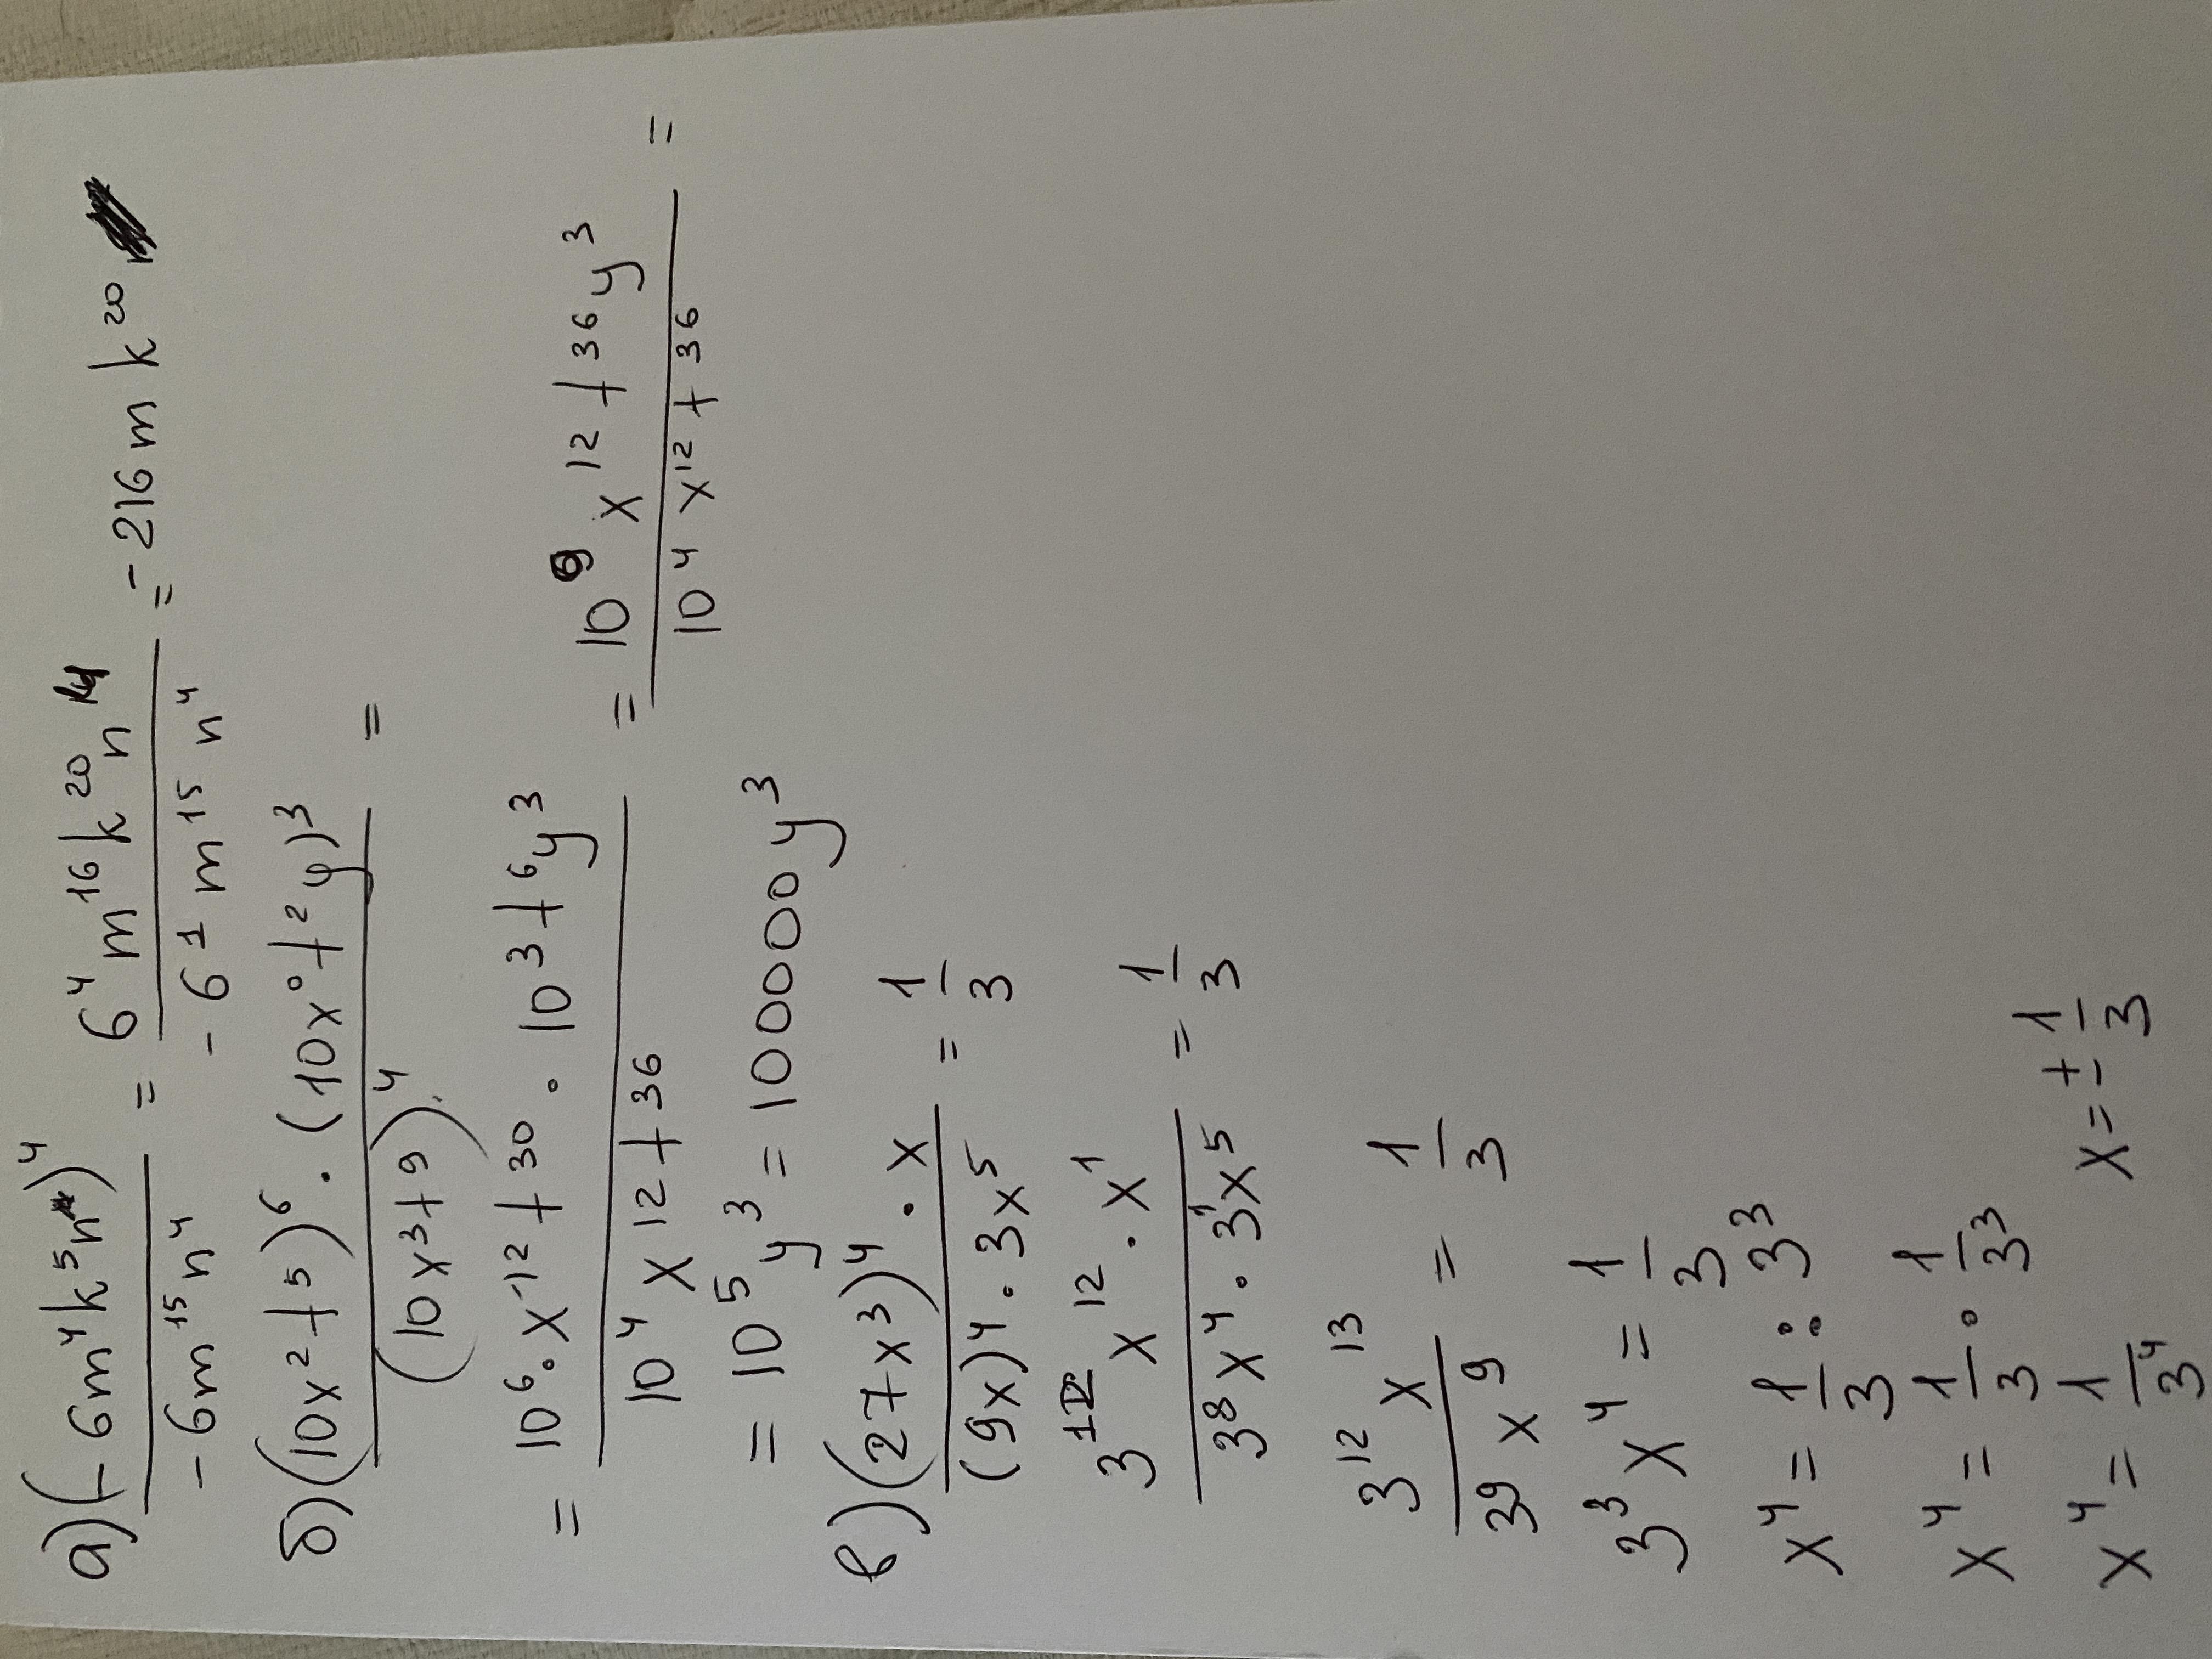 а) (-6m⁴k⁵n)⁴ / -6m¹⁵n⁴ = 6⁴m¹⁶k²⁰n⁴ / -6¹m¹⁵n⁴ = -216mk²⁰
б) (10x²t⁵)⁶ · (10x⁰t²y)³ / (10x³t⁹)⁴ =
= 10⁶·x¹²t³⁰ · 10³t⁶y³ / 10⁴x¹²t³⁶ = 10⁹x¹²t³⁶y³ / 10⁴x¹²t³⁶ =
= 10⁵y³ = 100000y³
в) (27x³)⁴ · x / (9x)⁴ · 3x⁵ = 1/3
3¹²x¹² · x¹ / 3⁸x⁴ · 3¹x⁵ = 1/3
3¹²x¹³ / 3⁹x⁹ = 1/3
3³x⁴ = 1/3
x⁴ = 1/3 : 3³
x⁴ = 1/3 · 1/3³
x⁴ = 1/3⁴ x = ± 1/3